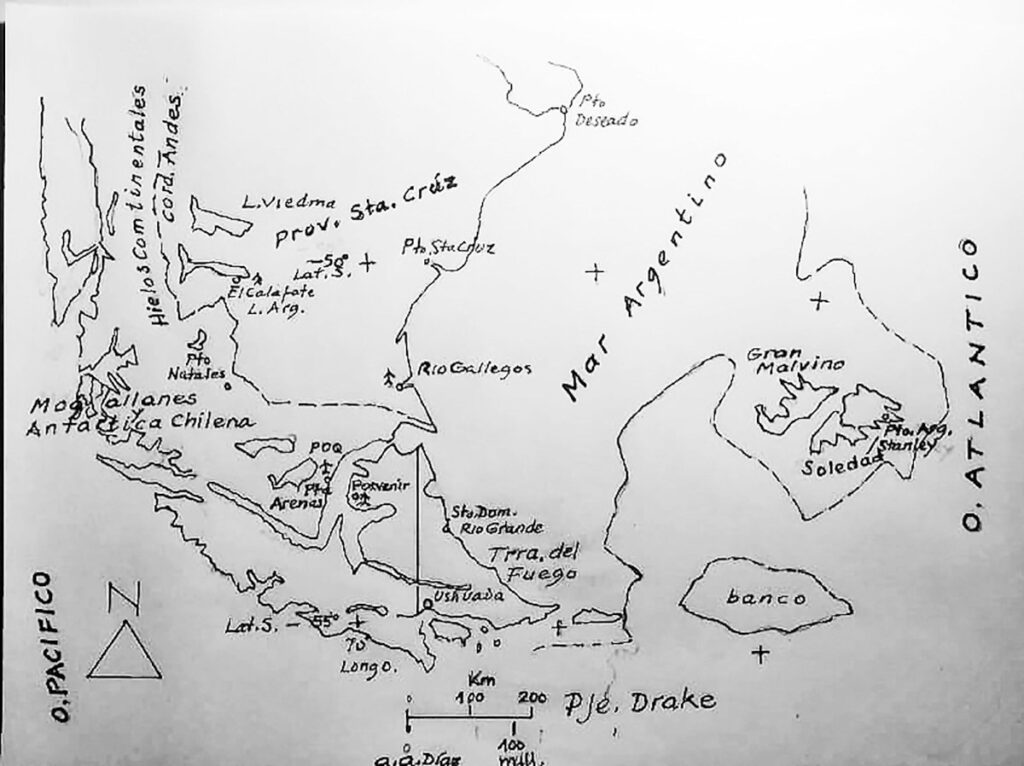 Pto
Deseado
Hielos Continentales
cord. Andes
L. Viedma
prov. Sta. Crúz
Mar Argentino
O. ATLANTICO
Pto. Sta Cruz
-50°
Lat. S.
El Calafate
L. Arg.
Pto
Natales
Río Gallegos
Gran
Malvino
Magallanes
Antartica Chilena
Pto. Arg.
/Stanley
Soledad
POQ
Pta
Arenas
Porvenir
Sto. Dom.
Río Grande
Trra. del
Fuego
banco
Ushuaia
N
O. PACIFICO
Lat. S. - 55°
70
Longo.
Km
0 100 200
Pje. Drake
0 100
a.a. Díaz mill.